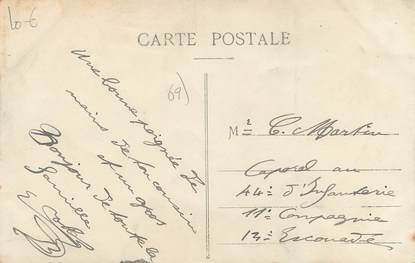 10-E
CARTE POSTALE
69)
Une bonne poignée de
mains de ton cousin
et un gros
Bonjour de toute la
famille
Mr C. Martin
Caporal au
44e d'Infanterie
11e Compagnie
13e Escouade